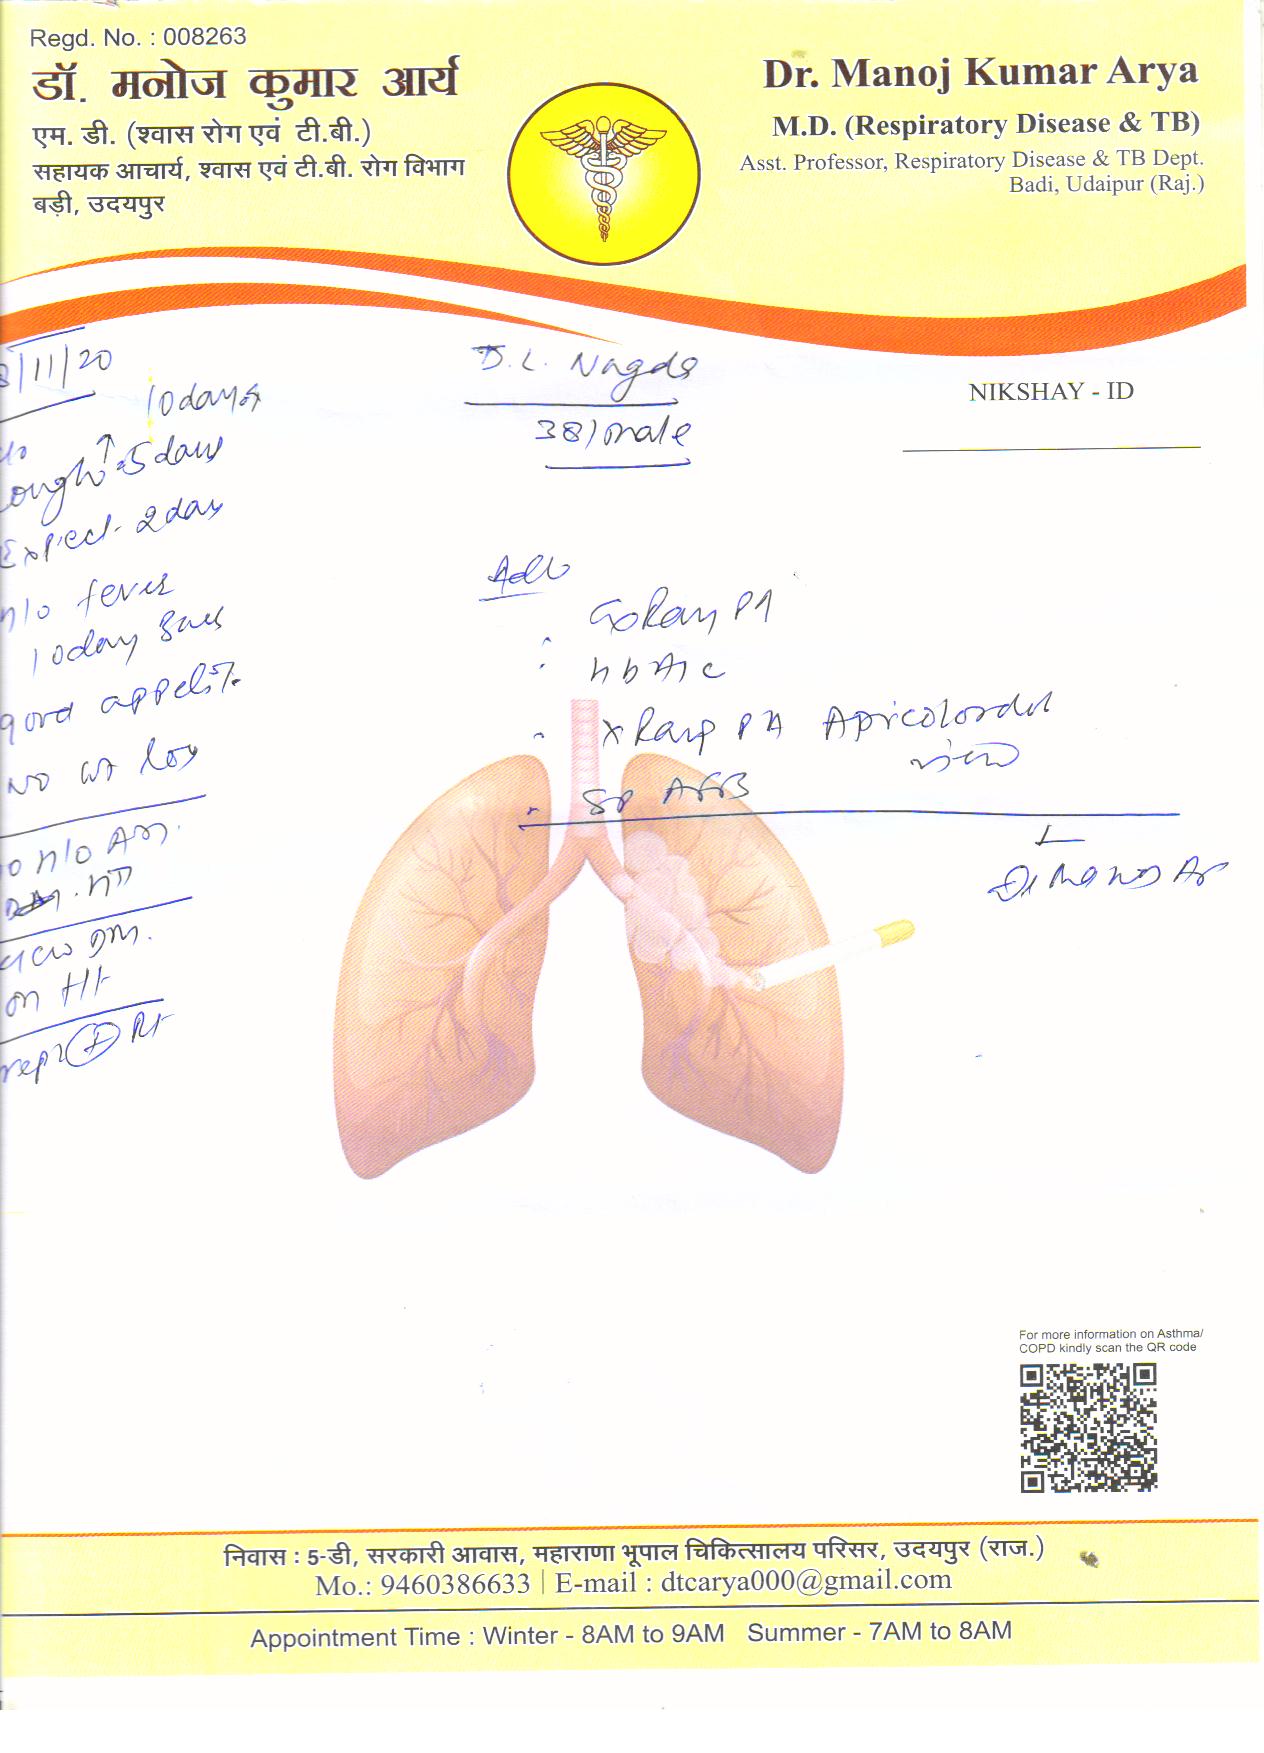 Regd. No. : 008263
डॉ. मनोज कुमार आर्य
एम. डी. (श्वास रोग एवं टी.बी.)
सहायक आचार्य, श्वास एवं टी.बी. रोग विभाग
बड़ी, उदयपुर
Dr. Manoj Kumar Arya
M.D. (Respiratory Disease & TB)
Asst. Professor, Respiratory Disease & TB Dept.
Badi, Udaipur (Raj.)
/11/20
D.L. Nagda
38/male
NIKSHAY - ID
10days
ough ↑ 5 days
Expect. 2 day
fever
10day
good appetite
NO wt loss
DM.
on Ht
Adv
XRay PA
hbA1c
XRay PA Apicolordotic
view
Sp AFB
For more information on Asthma/
COPD kindly scan the QR code
निवास : 5-डी, सरकारी आवास, महाराणा भूपाल चिकित्सालय परिसर, उदयपुर (राज.)
Mo.: 9460386633 | E-mail : dtcarya000@gmail.com
Appointment Time : Winter - 8AM to 9AM Summer - 7AM to 8AM